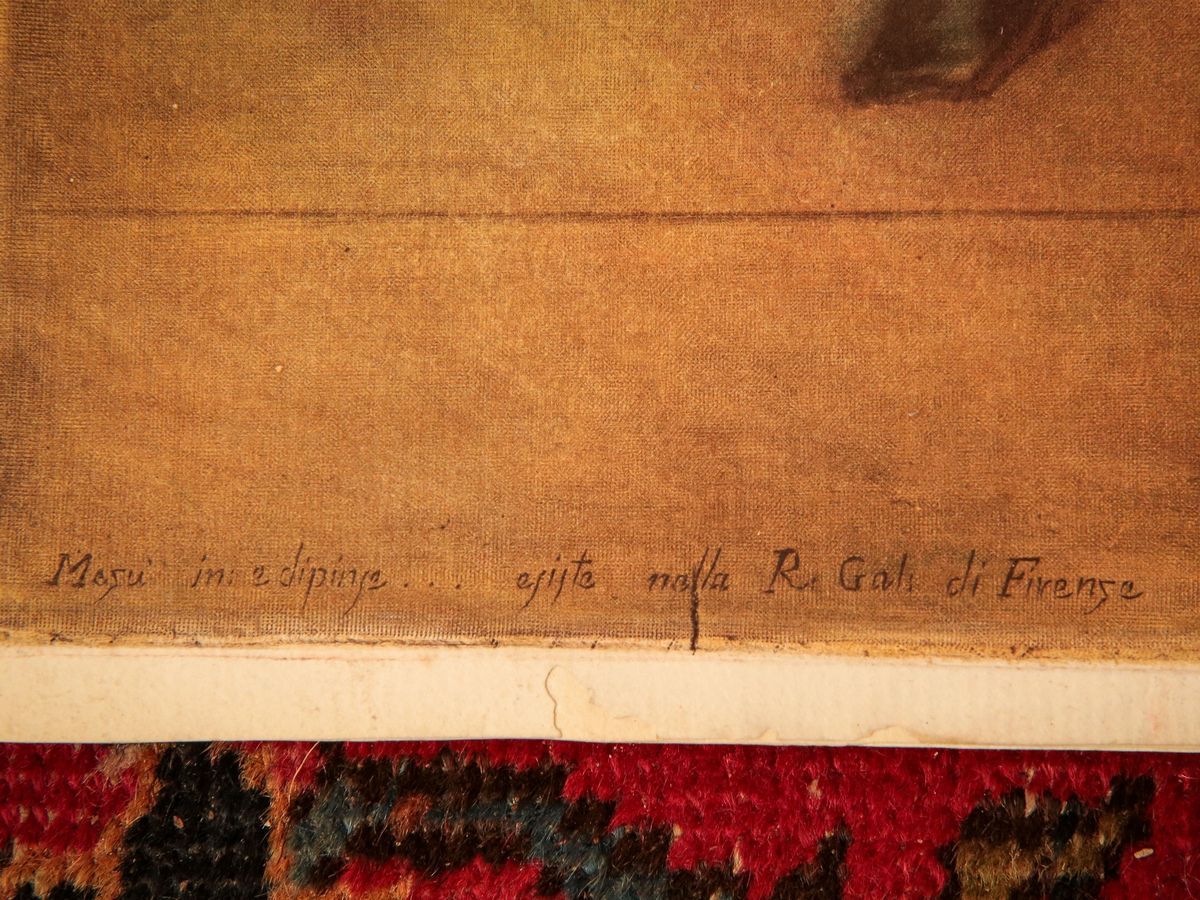 Mesu' in: e dipinse . . . esiste nella R. Gal: di Firense